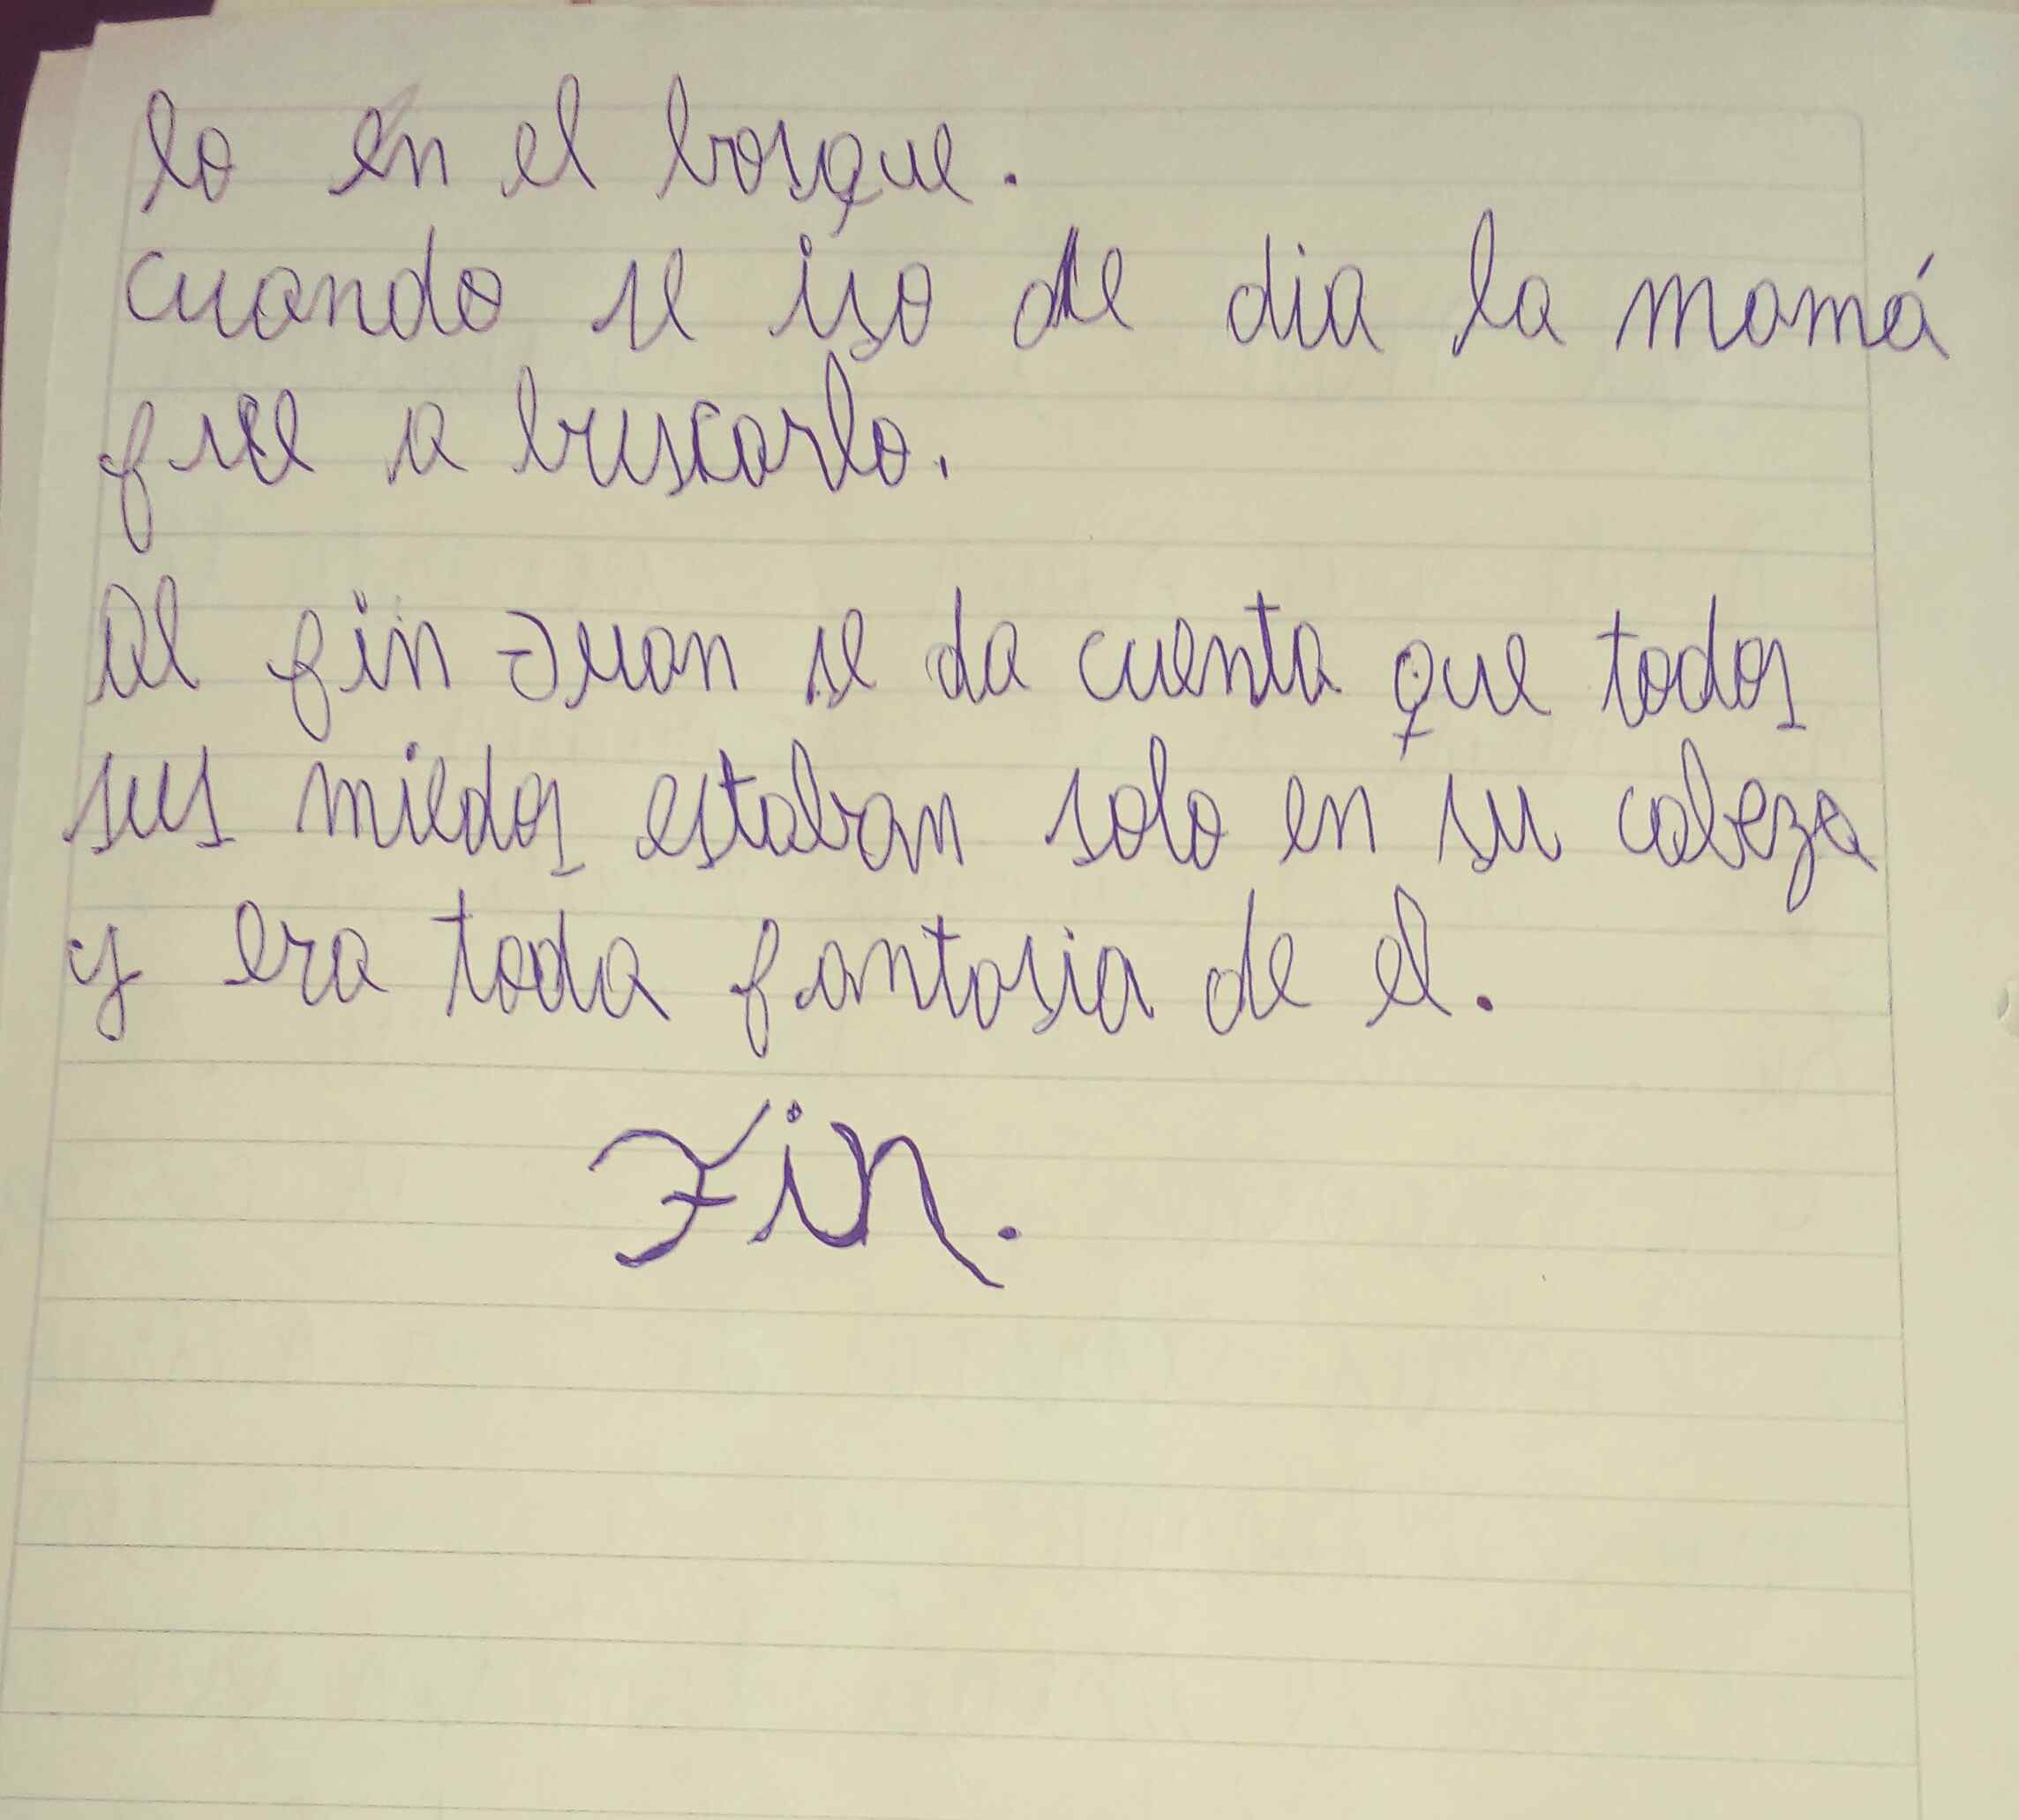 lo en el bosque.
cuando se iso de dia la mamá
fue a buscarlo.
Al fin Juan se da cuenta que todos
sus miedos estaban solo en su cabeza
y era toda fantasia de el.
Fin.